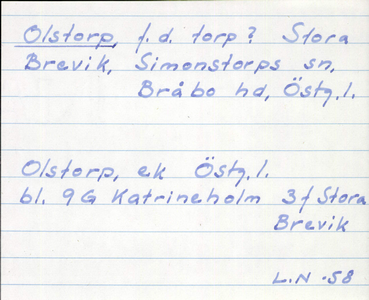 Olstorp, f.d. torp? Stora
Brevik, Simonstorps sn,
Bråbo hd, Östg.l.
Olstorp, ek Östg.l.
bl. 9G Katrineholm 3f Stora
Brevik
L.N -58